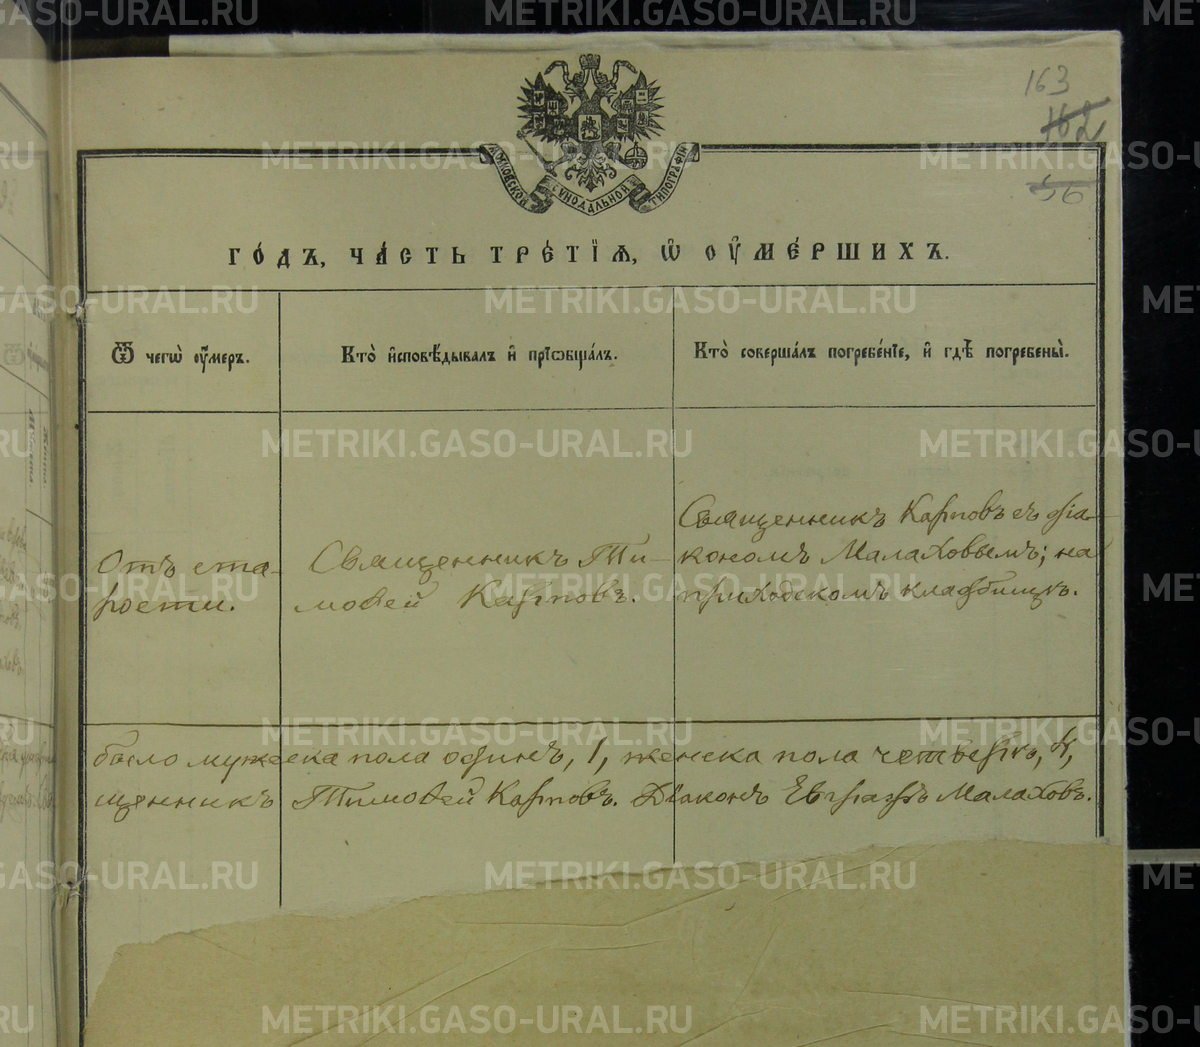 163
162
56
МОСКОВСКОЙ СѴНОДАЛЬНОЙ ТИПОГРАФІИ
ГО́ДЪ, ЧА́СТЬ ТРЕ́ТІѦ, Ѡ҆ ОУ҆МЕ́РШИХЪ.
Ѿ чегѡ̀ оу҆́меръ.
Кто̀ и҆сповѣ́дывалъ и҆ прїѡбща́лъ.
Кто̀ соверша́лъ погребе́нїе, и҆ гдѣ̀ погребены̀.
Отъ ста-
рости.
Священникъ Ти-
моѳей Карповъ.
Священникъ Карповъ съ діа-
кономъ Малаховымъ; на
приходскомъ кладбищѣ.
было мужеска пола одинъ, 1, женска пола четверо, 4,
щенникъ Тимоѳей Карповъ. Діаконъ Евграфъ Малаховъ.
METRIKI.GASO-URAL.RU